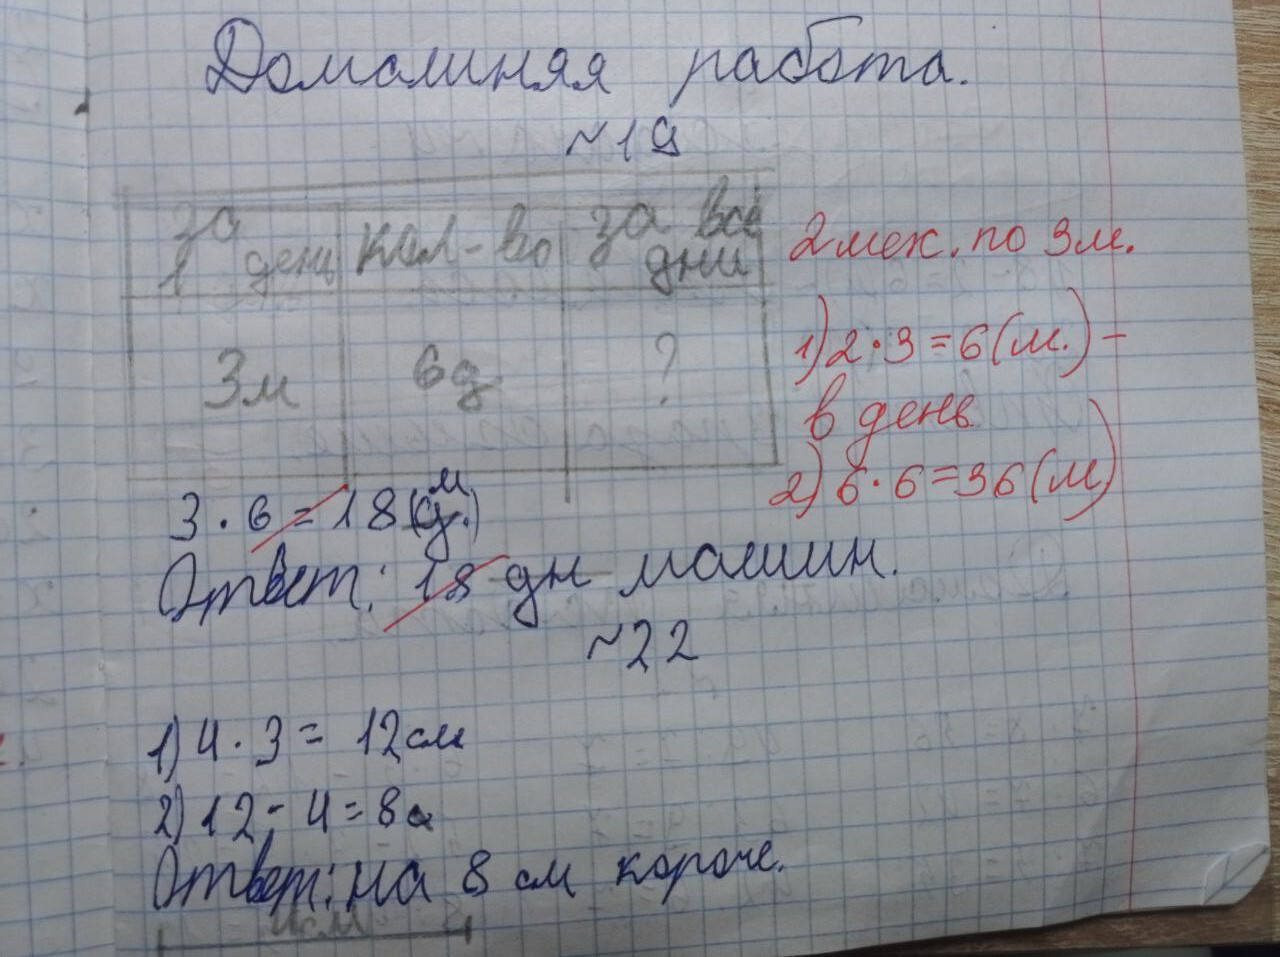 Домашняя работа.
~19
за 1 день кол-во за все дни
3м 6д ?
2 мех. по 3м.
1) 2·3=6(м.) -
в день
2) 6·6=36(м)
3·6=18(м)
Ответ: 18 дн машин.
~22
1) 4·3= 12см
2) 12-4=8с
Ответ: на 8 см короче.
4см